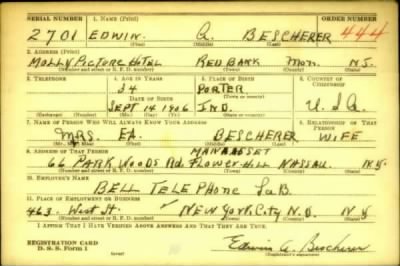 SERIAL NUMBER 1. NAME (Print) ORDER NUMBER
2701 EDWIN. A. BESCHERER 444
(First) (Middle) (Last)
2. ADDRESS (Print)
MOLLY PICTURE HOTEL RED BANK MON. N.J.
(Number and street or R. F. D. number) (Town) (County) (State)
3. TELEPHONE 4. AGE IN YEARS 5. PLACE OF BIRTH 6. COUNTRY OF CITIZENSHIP
34 PORTER
DATE OF BIRTH (Town or county)
SEPT 14 1906 IND. U.S.A.
(Mo.) (Day) (Yr.) (State or country)
7. NAME OF PERSON WHO WILL ALWAYS KNOW YOUR ADDRESS 8. RELATIONSHIP OF THAT PERSON
MRS. EA. BESCHERER WIFE
(Mr., Mrs., Miss) (First) (Middle) (Last)
9. ADDRESS OF THAT PERSON MANHASSET
66 PARK WOODS Rd. FLOWER-HILL NASSAU N.Y.
(Number and street or R. F. D. number) (Town) (County) (State)
10. EMPLOYER'S NAME
BELL TELEPHONE LAB.
11. PLACE OF EMPLOYMENT OR BUSINESS
463 West St. NEW YORK City N.Y.
(Number and street or R. F. D. number) (Town) (County) (State)
I AFFIRM THAT I HAVE VERIFIED ABOVE ANSWERS AND THAT THEY ARE TRUE.
REGISTRATION CARD
D. S. S. Form 1 (over) Edwin A. Bescherer